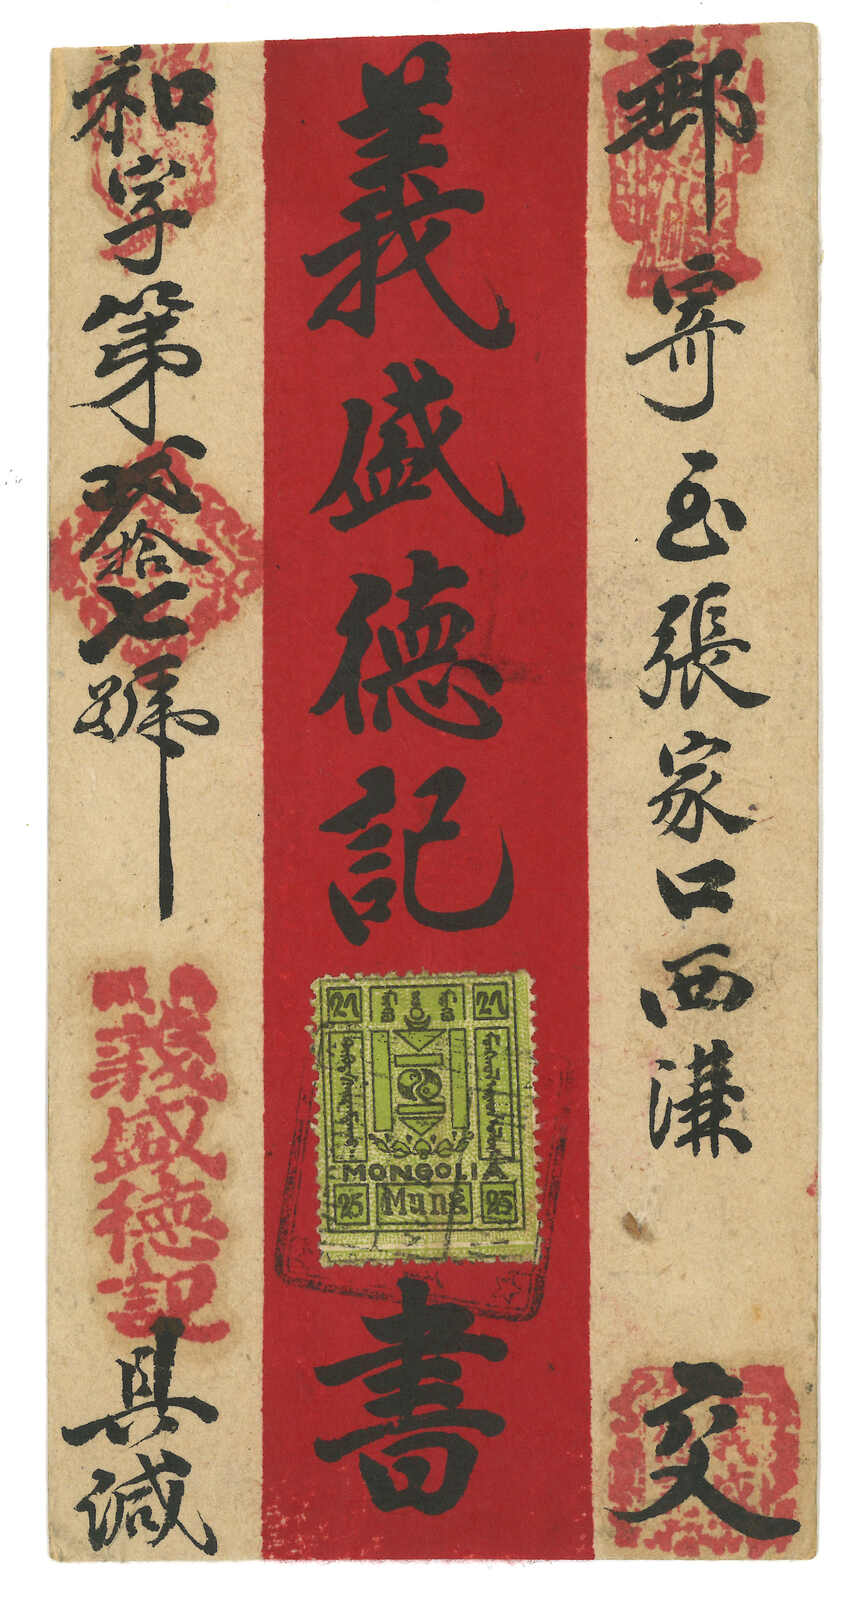 郵寄至張家口西溝
交
義盛德記
書
MONGOLIA
25 Mung 25
和字第弍拾七號
義盛德記
具緘